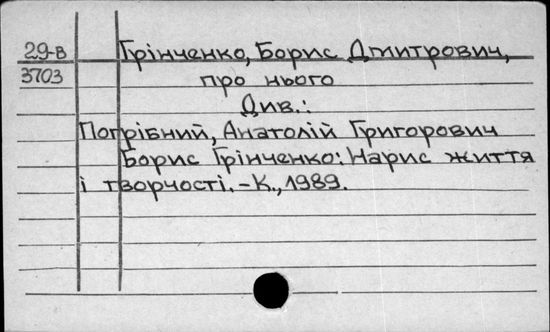 29-В Грінченко, Борис Дмитрович,
3703 про нього
Див.:
Погрібний, Анатолій Григорович
Борис Грінченко: Нарис життя
і творчості. – К., 1989.